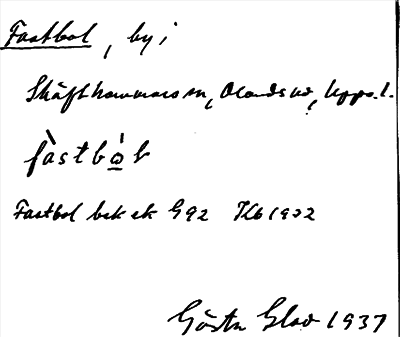 Fastbol, by i
Skäfthammars sn, Olands hd, Upps. l.
fàstbo̲l
Fastbol bebek G92 Kb 1922
Gösta Glad 1937